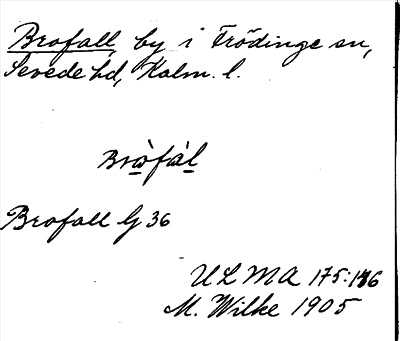 Brofall, by i Frödinge sn,
Sevede hd, Kalm. l.
Bro̲fa̲l
Brofall lj 36
ULMA 175:146
M. Wilke 1905